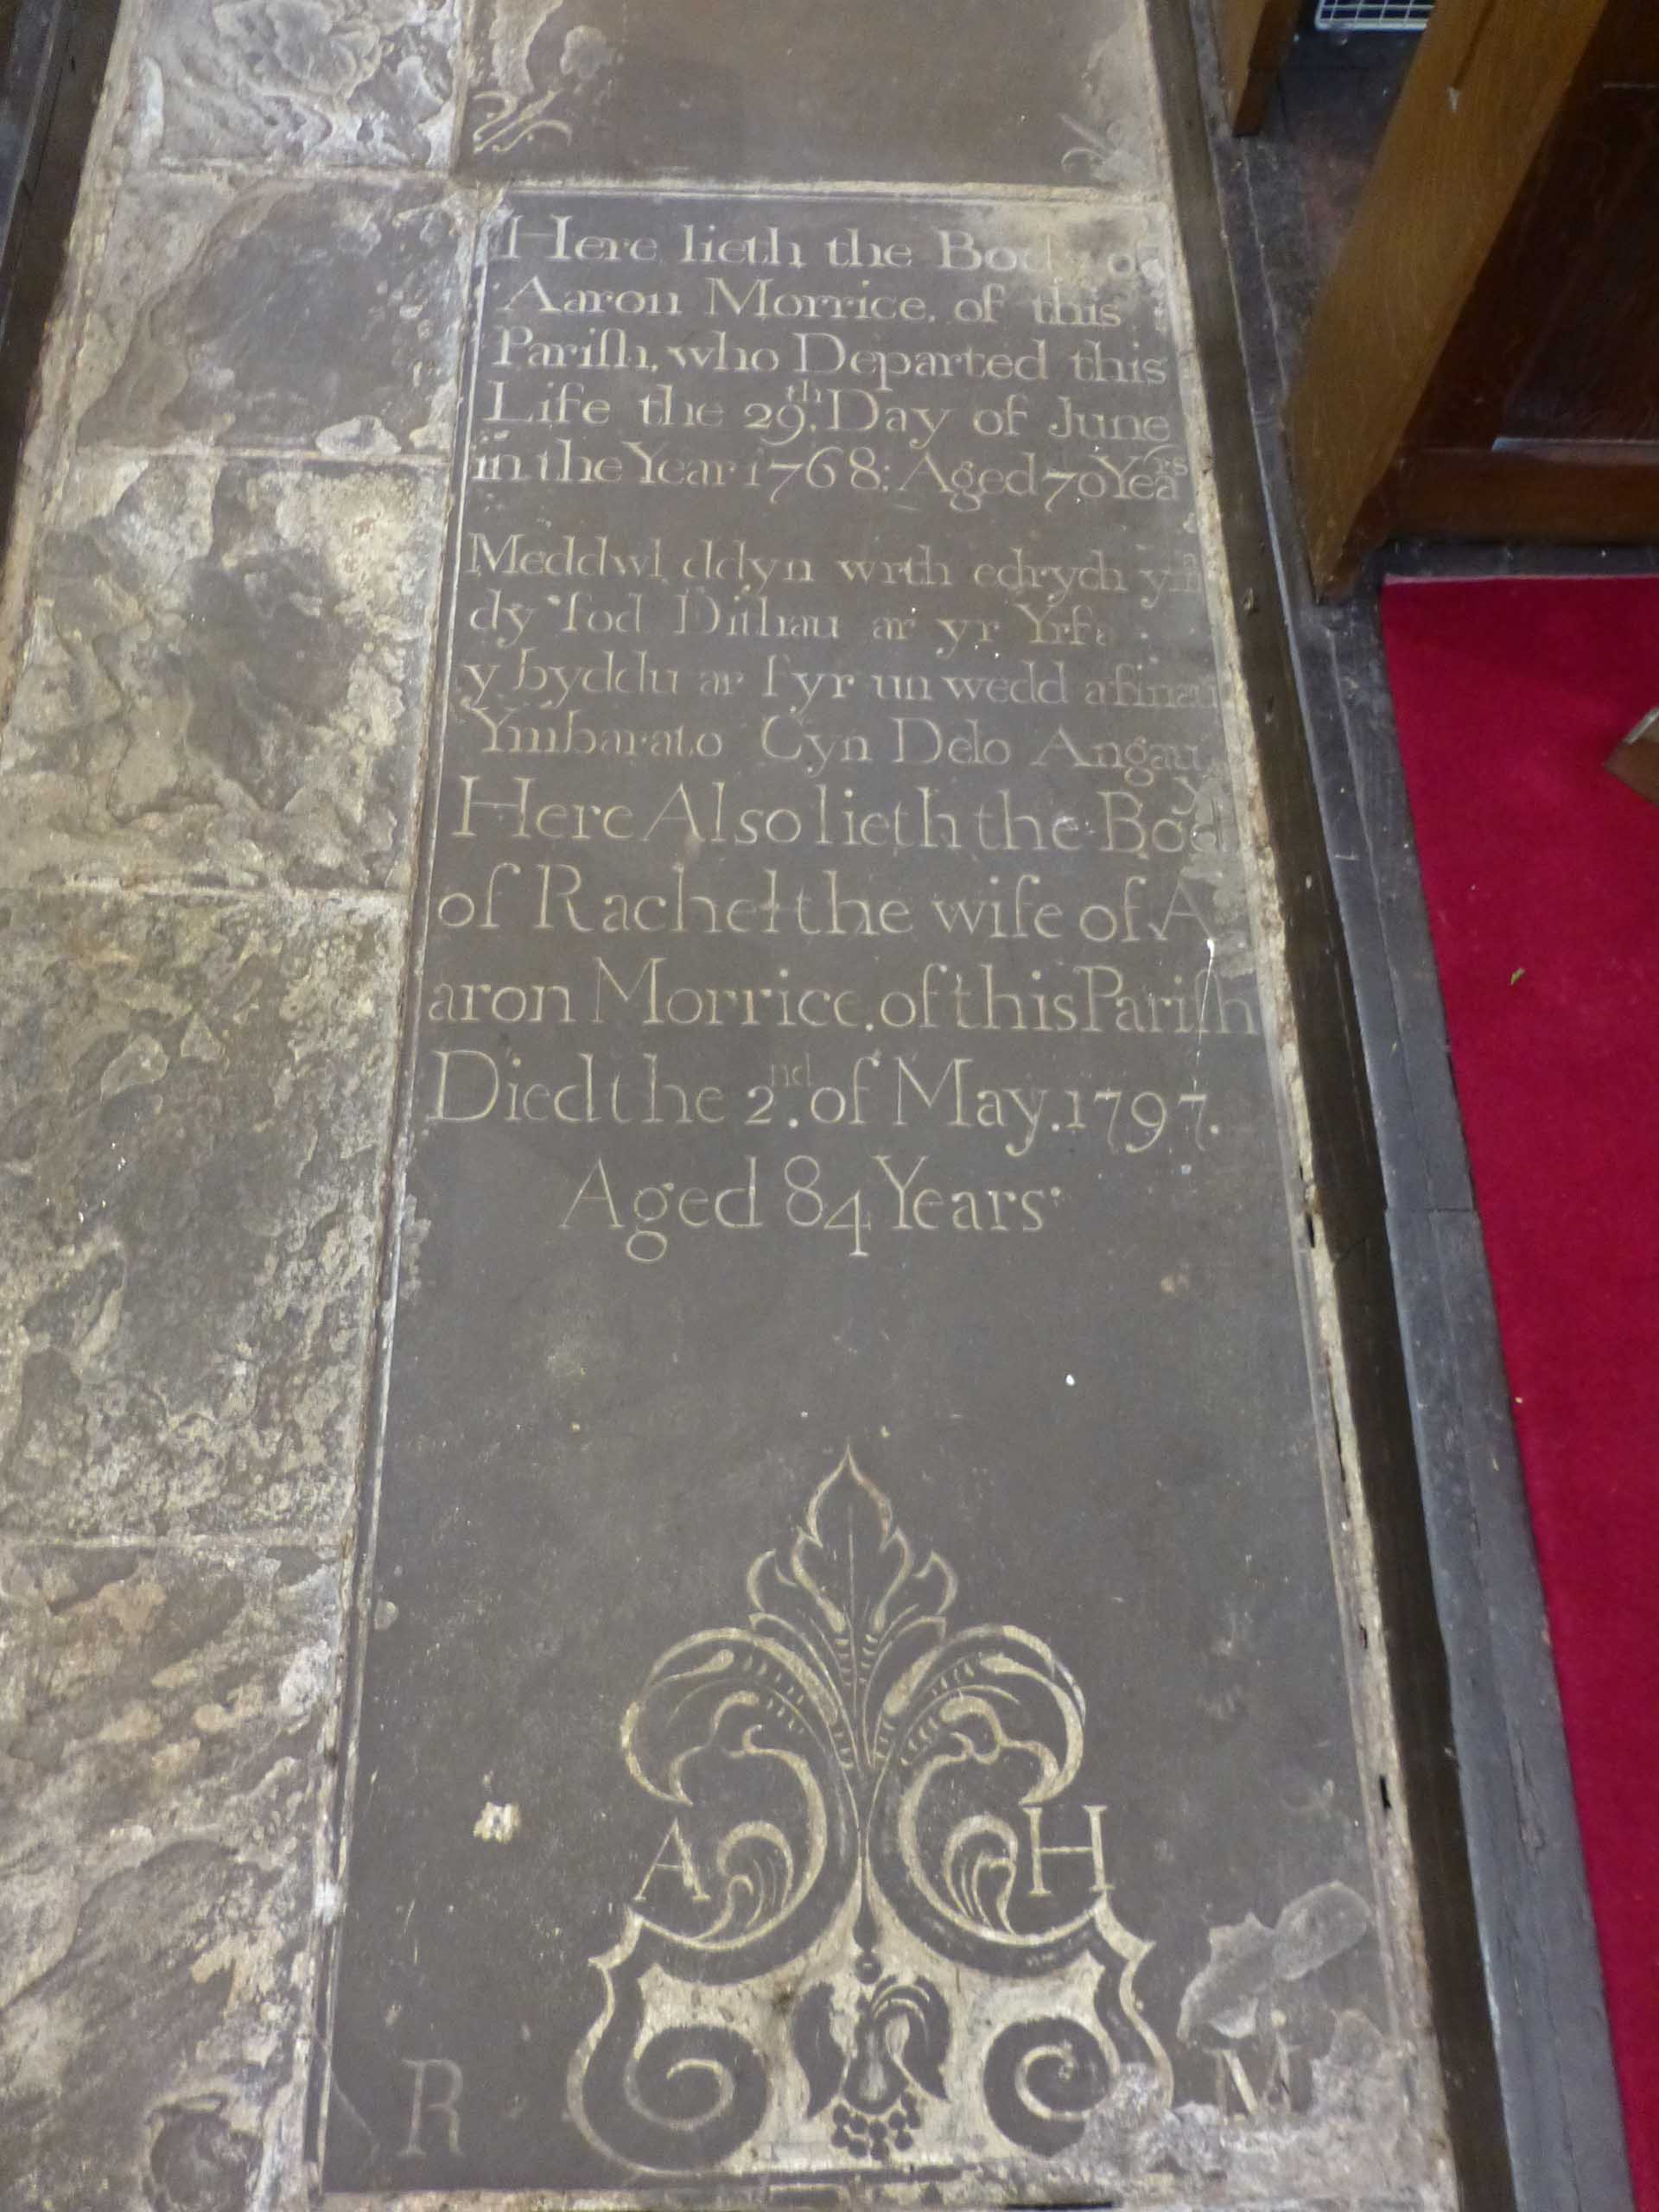 Here lieth the Body of
Aaron Morrice. of this
Pariſh, who Departed this
Life the 29.th Day of June
in the Year 1768: Aged 70 Years
Meddwl ddyn wrth edrych
dy fod Dithau ar yr Yrfa
y byddu ar fyr un wedd a finau
Ymbarato Cyn Delo Angau
Here Also lieth the Body
of Rachel the wife of A
aron Morrice. of this Pariſh
Died the 2.nd of May. 1797.
Aged 84 Years
A H
R M